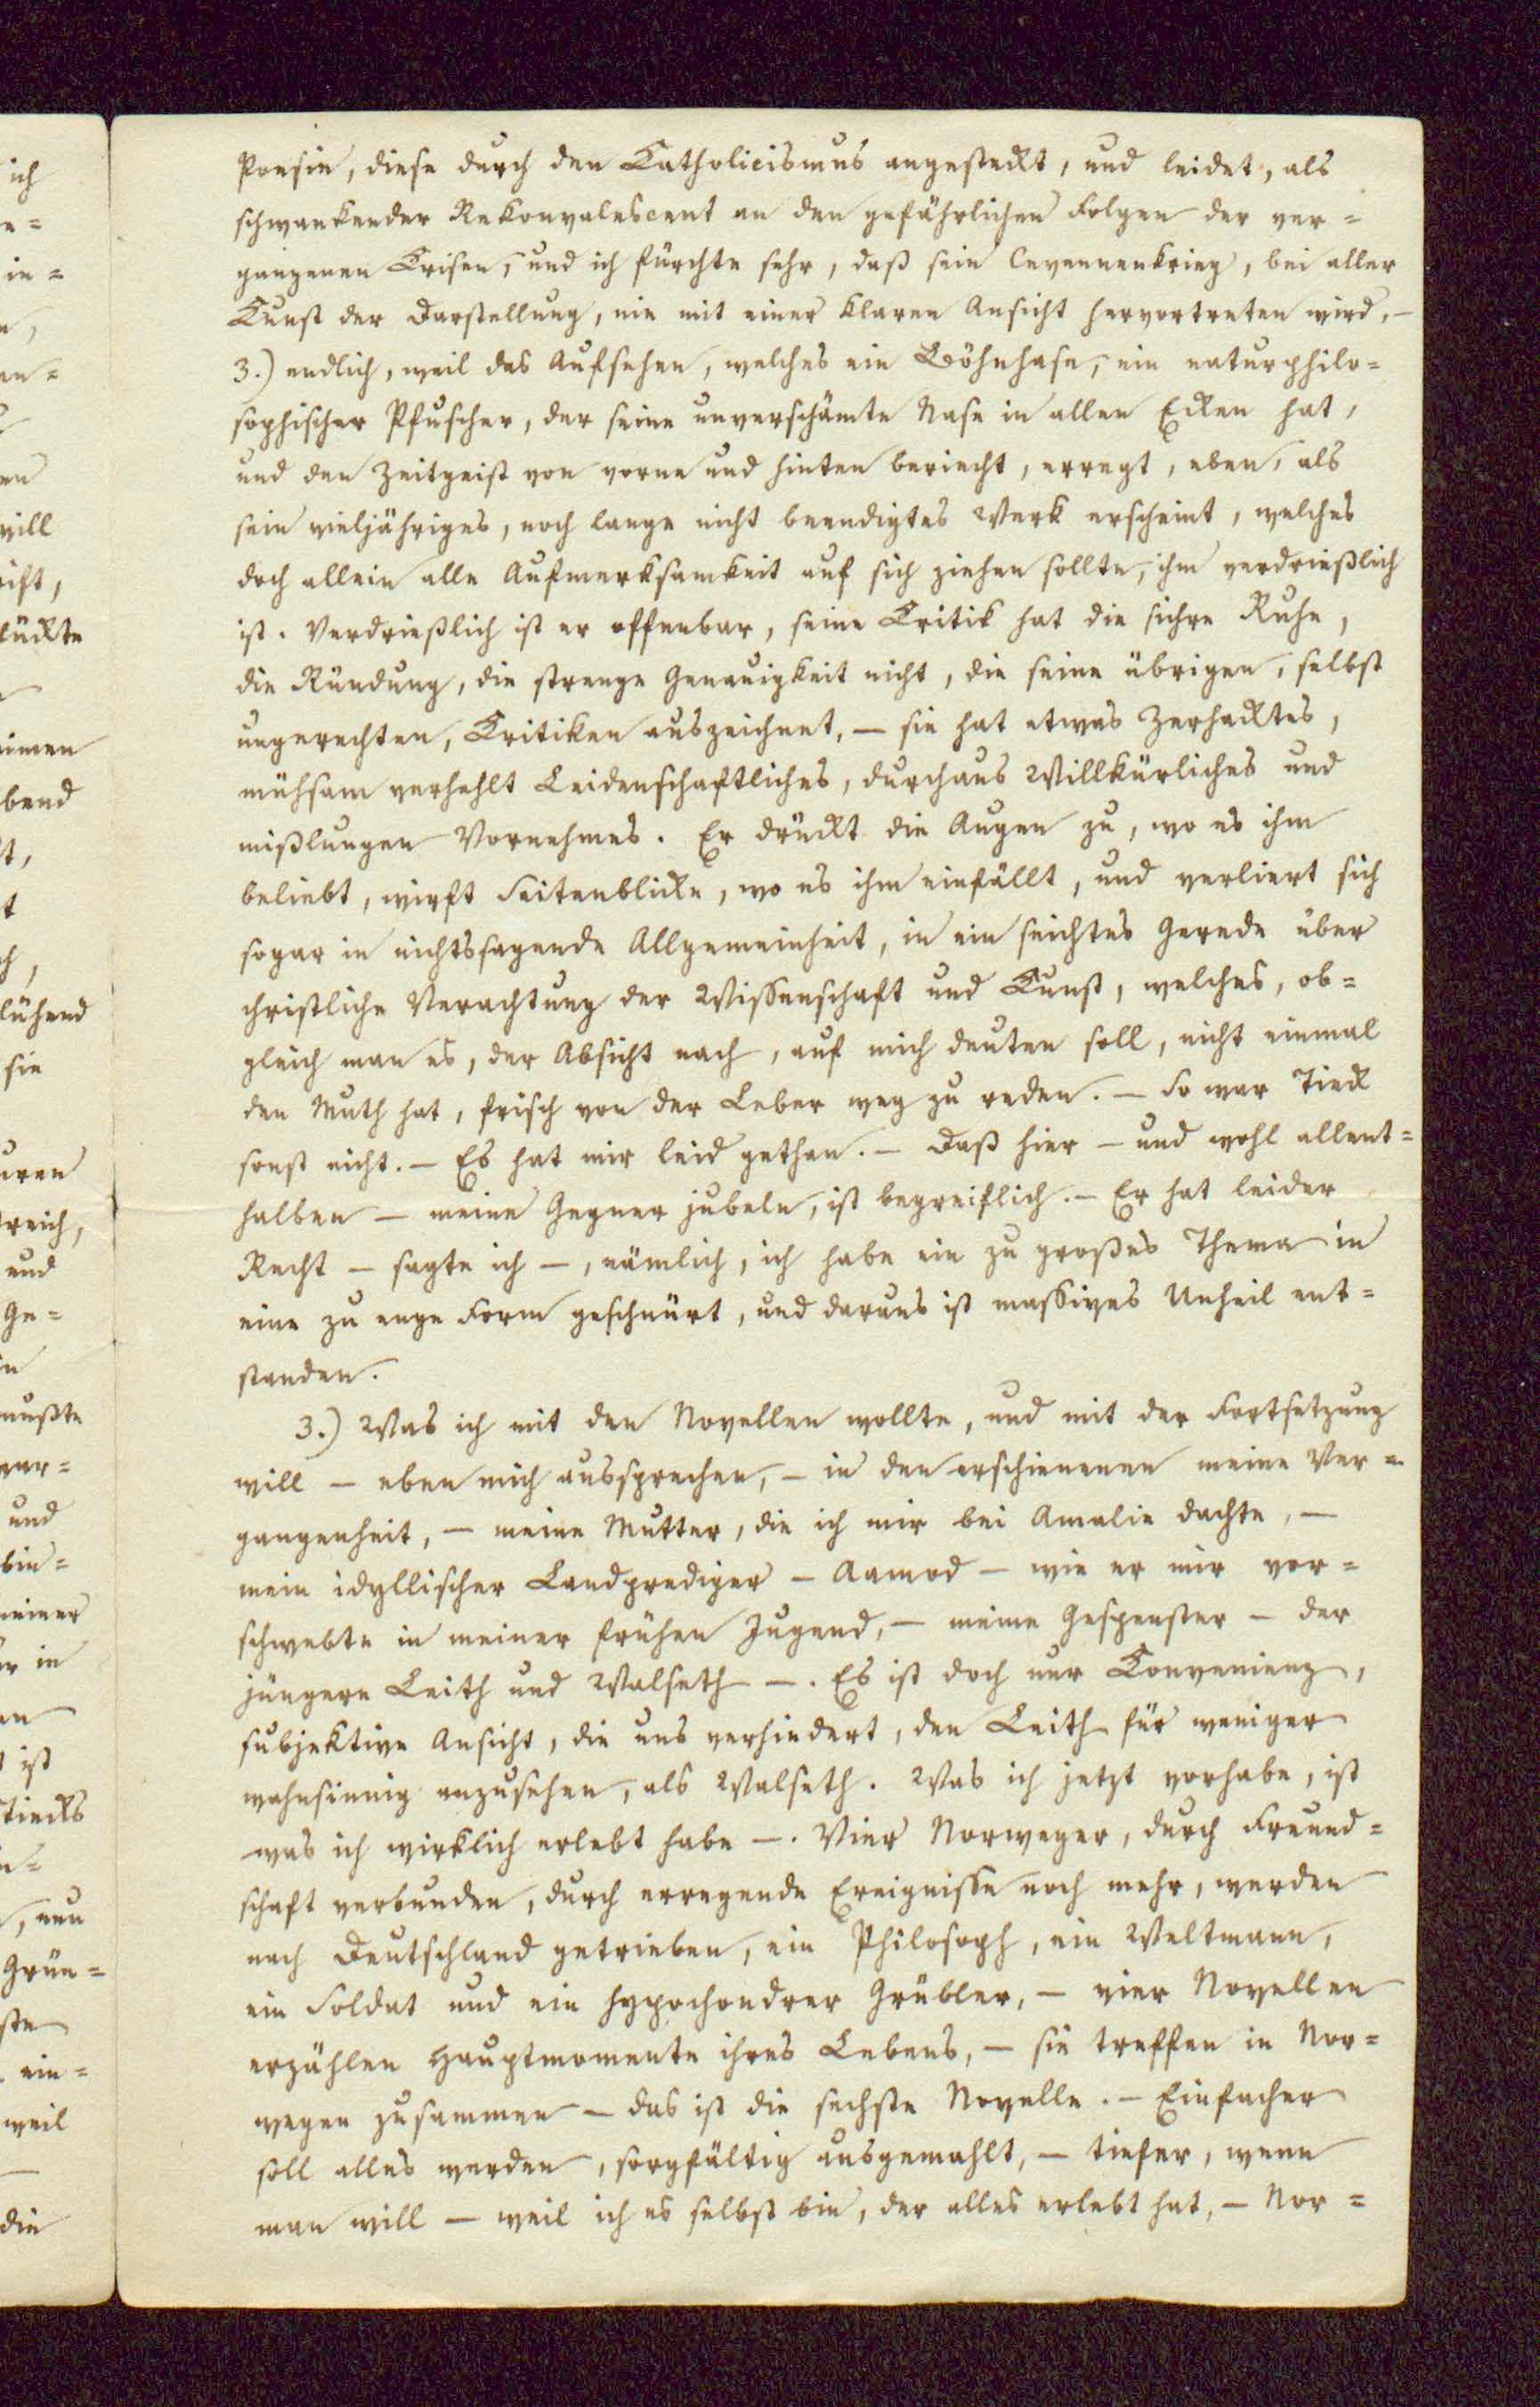 Poesie, diese durch den Katholicismus angesteckt, und leidet, als
schwankender Rekonvalescent an den gefährlichen Folgen der ver-
gangenen Crisen, und ich fürchte sehr, daß sein Cevennenkrieg, bei aller
Kunst der Darstellung, nie mit einer klaren Ansicht hervortreten wird, –
3.) endlich, weil das Aufsehen, welches ein Böhnhase, ein naturphilo-
sophischer Pfuscher, der seine unverschämte Nase in allen Ecken hat,
und den Zeitgeist von vorne und hinten beriecht, erregt, eben, als
sein vieljähriges, noch lange nicht beendigtes Werk erscheint, welches
doch allein alle Aufmerksamkeit auf sich ziehen sollte, ihm verdrießlich
ist. Verdrießlich ist er offenbar, seine Critik hat die sichre Ruhe,
die Ründung, die strenge Genauigkeit nicht, die seine übrigen, selbst
ungerechten, Critiken auszeichnet, – sie hat etwas Zerhacktes,
mühsam verhehlt Leidenschaftliches, durchaus Willkürliches und
mißlungen Vornehmes. Er drückt die Augen zu, wo es ihm
beliebt, wirft Seitenblicke, wo es ihm einfällt, und verliert sich
sogar in nichtssagende Allgemeinheit, in ein seichtes Gerede über
christliche Verachtung der Wissenschaft und Kunst, welches, ob-
gleich man es, der Absicht nach, auf mich deuten soll, nicht einmal
den Muth hat, frisch von der Leber weg zu reden. – So war Tieck
sonst nicht. – Es hat mir leid gethan. – Daß hier – und wohl allent-
halben – meine Gegner jubeln, ist begreiflich. – Er hat leider
Recht – sagte ich –, nämlich, ich habe ein zu großes Thema in
eine zu enge Form geschnürt, und daraus ist massives Unheil ent-
standen.
3.) Was ich mit den Novellen wollte, und mit der Fortsetzung
will – eben mich aussprechen, – in den erschienenen meine Ver-
gangenheit, – meine Mutter, die ich mir bei Amalie dachte, –
mein idyllischer Landprediger – Aamod – wie er mir vor-
schwebte in meiner frühen Jugend, – meine Gespenster – der
jüngere Leith und Walseth –. Es ist doch nur Convenienz,
subjektive Ansicht, die uns verhindert, den Leith für weniger
wahnsinnig anzusehen, als Walseth. Was ich jetzt vorhabe, ist
was ich wirklich erlebt habe –. Vier Norweger, durch Freund-
schaft verbunden, durch erregende Ereignisse noch mehr, werden
nach Deutschland getrieben, ein Philosoph, ein Weltmann,
ein Soldat und ein hypochondrer Grübler, – vier Novellen
erzählen Hauptmomente ihres Lebens, – sie treffen in Nor-
wegen zusammen – das ist die sechste Novelle. – Einfacher
soll alles werden, sorgfältig ausgemahlt, – tiefer, wenn
man will – weil ich es selbst bin, der alles erlebt hat, – Nor-